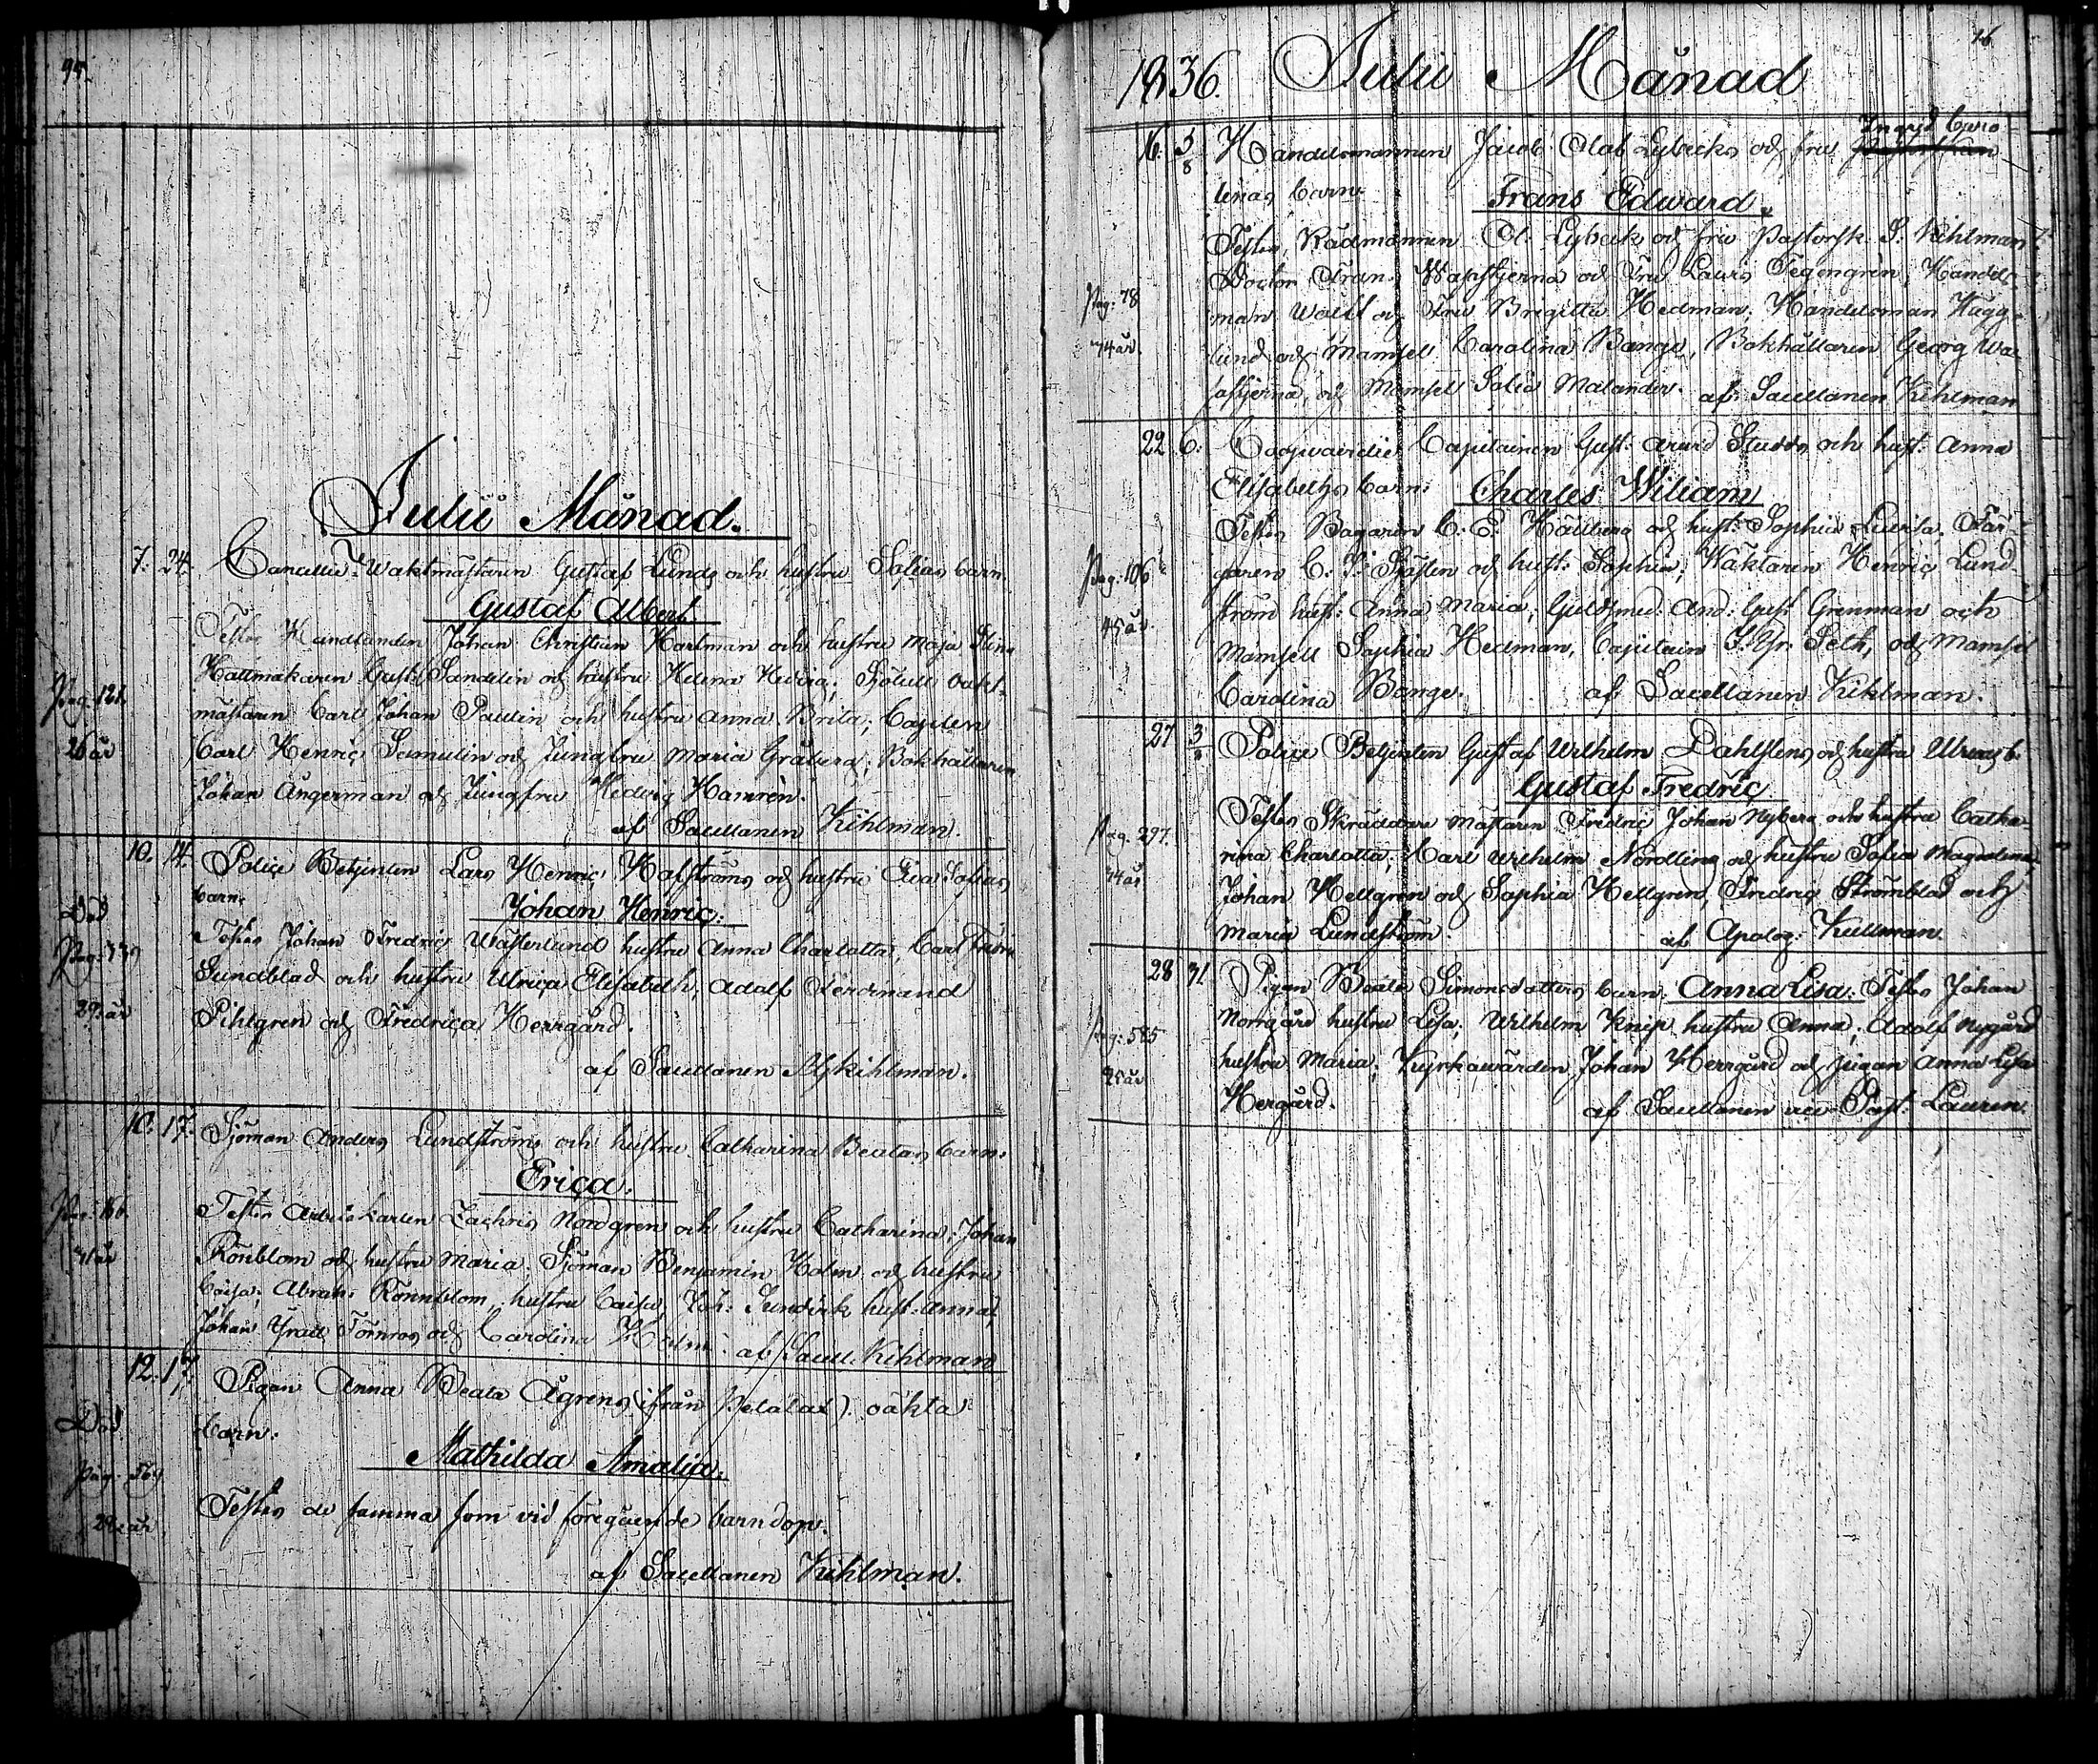 95.
Julii Månad.
7. 24. Cancellie Waktmästaren Gustaf Lunds och hustru Sofias barn.
Gustaf Albert
Testes Handlanden Johan Christian Hartman och hustru Maja Stina
Hattmakaren Gust: Sandelin och hustru Helena Hedvig; Sjötull vakt-
Pag. 121. mästaren Carl Johan Paulin och hustru Anna Brita; Capiten
26 år Carl Henric Samulin och Jungfru Maria Gråberg; Bokhållaren
Johan Ångerman och Jungfru Hedvig Hamrèn.
af Sacellanen Kihlman.
10. 14. Police Betjenten Lars Henric Hafströms och hustru Eva Sofias
Död barn. Johan Henric.
Testes Johan Fredric Wästerlund hustru Anna Charlotta, Carl
Sundblad och hustru Ulrica Elisabeth, Adolf Ferdinand
29 år Pihlgren och Fredrica Herrgård.
af Sacellanen Kihlman.
10. 17. Sjöman Anders Lundströms och hustru Catharina Beatas barn.
Erica.
Testes Zachris Nordgren och hustru Catharina; Johan
Rönblom och hustru Maria; Sjöman Benjamin Holm och hustru
Caisa; Abrah: Rönnblom, hustru Caisa, Joh: Sundvik hust: Anna,
Johan Törnros och Carolina Holm. af Sacell. Kihlman
12. 17. Pigan Anna Beata Ågrens (ifrån Petalax) oäkta
Död barn.
Mathilda Amalia.
Pag. 569
Testes de samma som vid föregående barndop.
29 år
af Sacellanen Kihlman.
1836. Julii Månad
16. 3/8 Handelsmannen Jacob Olof Lybecks och fru Ingrid Caro-
linas barn. Frans Edward.
Testes, Rådmannen Ol: Lybeck och fru Pastorsk. S. Kihlman
Doctor Frans Wasastjerna och Fru Laura Tegengrèn, Handels-
Pag: 78 man Wolff och Fru Brigitta Hedman; Handelsman Hägg-
lund och Mamsell Carolina Bange, Bokhållaren Georg Wa-
sastjerna, och Mamsel Sofia Malander. af Sacellanen Kihlman
22 6. Coopvaerdie Capitainen Gust: Arvid Studds och hust: Anna
Elisabeths barn: Charles Wiliam
Testes Bagaren C: E: Hällberg och hust: Sophia Lovisa, Fär-
Pag: 106 garen C: J: Gråsten och hust: Sophia; Waktaren Henric Lund-
ström hust: Anna Maria; Guldsmed: And: Gust Grenman och
45 år. Mamsell Sophia Hedman, Capitain Seth, och Mamsel
Carolina Bange. af Sacellanen Kihlman.
27 3/8 Police Betjenten Gustaf Wilhelm Dahlstens och hustru Ulricas b.
Gustaf Fredric
Testes Skräddare Mästaren Fredric Johan Nyberg och hustru Catha-
Pag. 297. rina Charlotta; Carl Wilhelm Nordling och hustru Sofia Magdalena,
Johan Hellgren och Sophia Hellgren, Fredric Strömblad och
Maria Lundström. af Apolog: Kullman.
28 31. Pigan Beata Simonsdotters barn: Anna Lisa. Testes Johan
Pag: 585 Norrgård hustru Lisa; Wilhelm Knip hustru Anna; Adolf Nygård
hustru Maria; Kyrkowärden Johan Herrgård och pigan Anna Lisa
Hergård. af Sacellanen vice Past: Lauren.